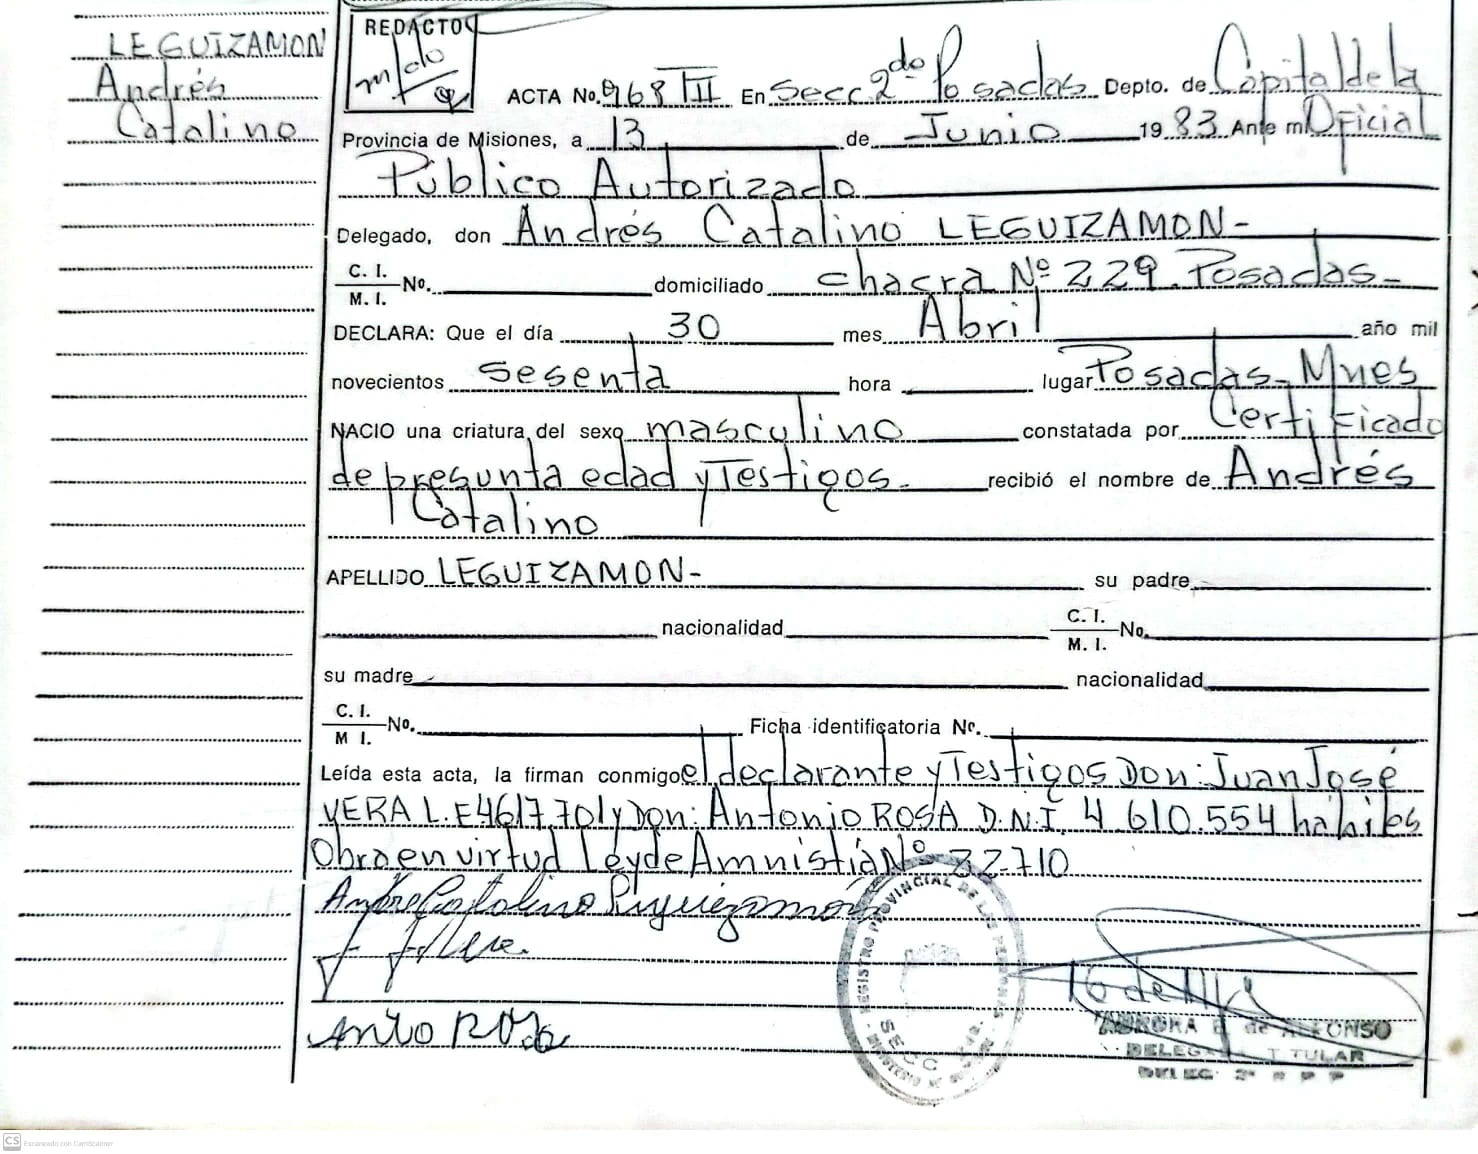 LEGUIZAMON
Andrés
Catalino
REDACTO
ACTA No. 968 TII En Secc 2do Posadas Depto. de Capital de la
Provincia de Misiones, a 13 de Junio 1983 Ante mi Oficial
Público Autorizado
Delegado, don Andrés Catalino LEGUIZAMON-
C. I.
M. I. No. domiciliado chacra Nº 229. Posadas-
DECLARA: Que el día 30 mes Abril año mil
novecientos sesenta hora lugar Posadas-Mnes
NACIO una criatura del sexo masculino constatada por Certificado
de presunta edad y Testigos- recibió el nombre de Andrés
Catalino
APELLIDO LEGUIZAMON- su padre
nacionalidad C. I.
M. I. No.
su madre nacionalidad
C. I.
M I. No. Ficha identificatoria No.
Leída esta acta, la firman conmigo el declarante y Testigos Don: Juan José
VERA L.E 4617.701 y Don: Antonio ROSA D.N.I. 4.610.554 hábiles
Obra en virtud Ley de Amnistía Nº 22710
REGISTRO PROVINCIAL DE LAS PERSONAS
SECC
Anto Rosa
AURORA de ALFONSO
DELEG TITULAR
DELEG. 2ª R P P
CS Escaneado con CamScanner